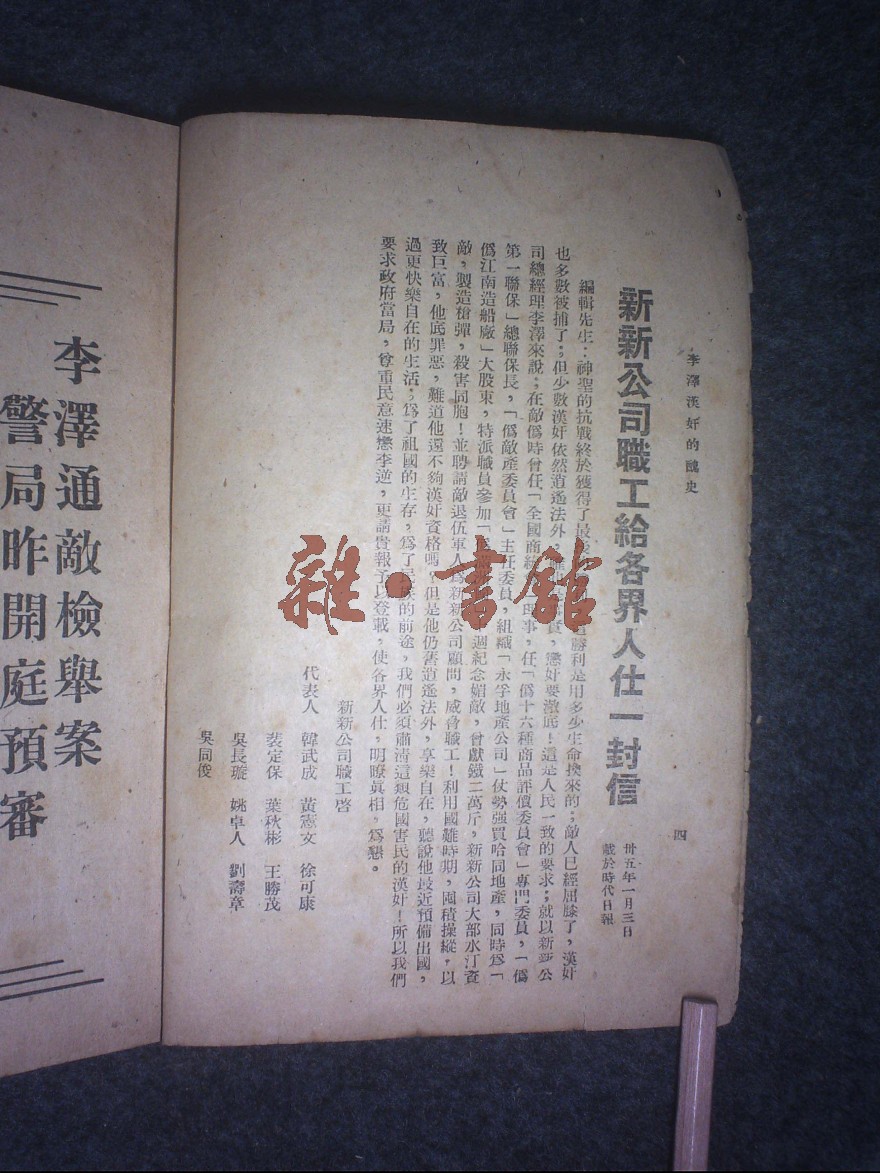 李澤漢奸的醜史
四
新新公司職工給各界人仕一封信
卅五年一月三日
載於時代日報
編輯先生：神聖的抗戰終於獲得了最 勝利是用多少生命換來的；敵人已經屈膝了，漢奸
也多數被捕了；但少數漢奸依然逍遙法外， 懲奸要澈底！這是人民一致的要求；就以新新公
司總經理李澤來說；在敵僞時曾任「全國商統 理事，任「僞十六種商品評價委員會」專門委員，「僞
第一聯保」總聯保長，「僞敵產委員會」主任委員，組織「永孚地產公司」仗勢强買哈同地產，同時爲「
僞江南造船廠」大股東，特派職員參加「 週紀念媚敵，曾獻鐵二萬斤，新新公司大部水汀資
敵，製造槍彈，殺害同胞！並聘請敵退伍軍人爲新新公司顧問，威脅職工！利用國難時期，囤積操縱，以
致巨富，他底罪惡，難道他還不够漢奸資格嗎？但是他仍舊逍遙法外，享樂自在，聽說他最近預備出國，
過更快樂自在的生活；爲了祖國的生存，爲了 的前途，我們必須肅清這類危國害民的漢奸！所以我們
要求政府當局，尊重民意速懲李逆，更請貴報予以登載，使各界人仕，明瞭眞相，爲懇。
新新公司職工啓
代表人 韓武成 黃憲文 徐可康
裴定保 葉秋彬 王勝茂
吳長璇 姚卓人 劉壽章
吳同俊
李澤通敵檢舉案
警局昨開庭預審
雜·書館